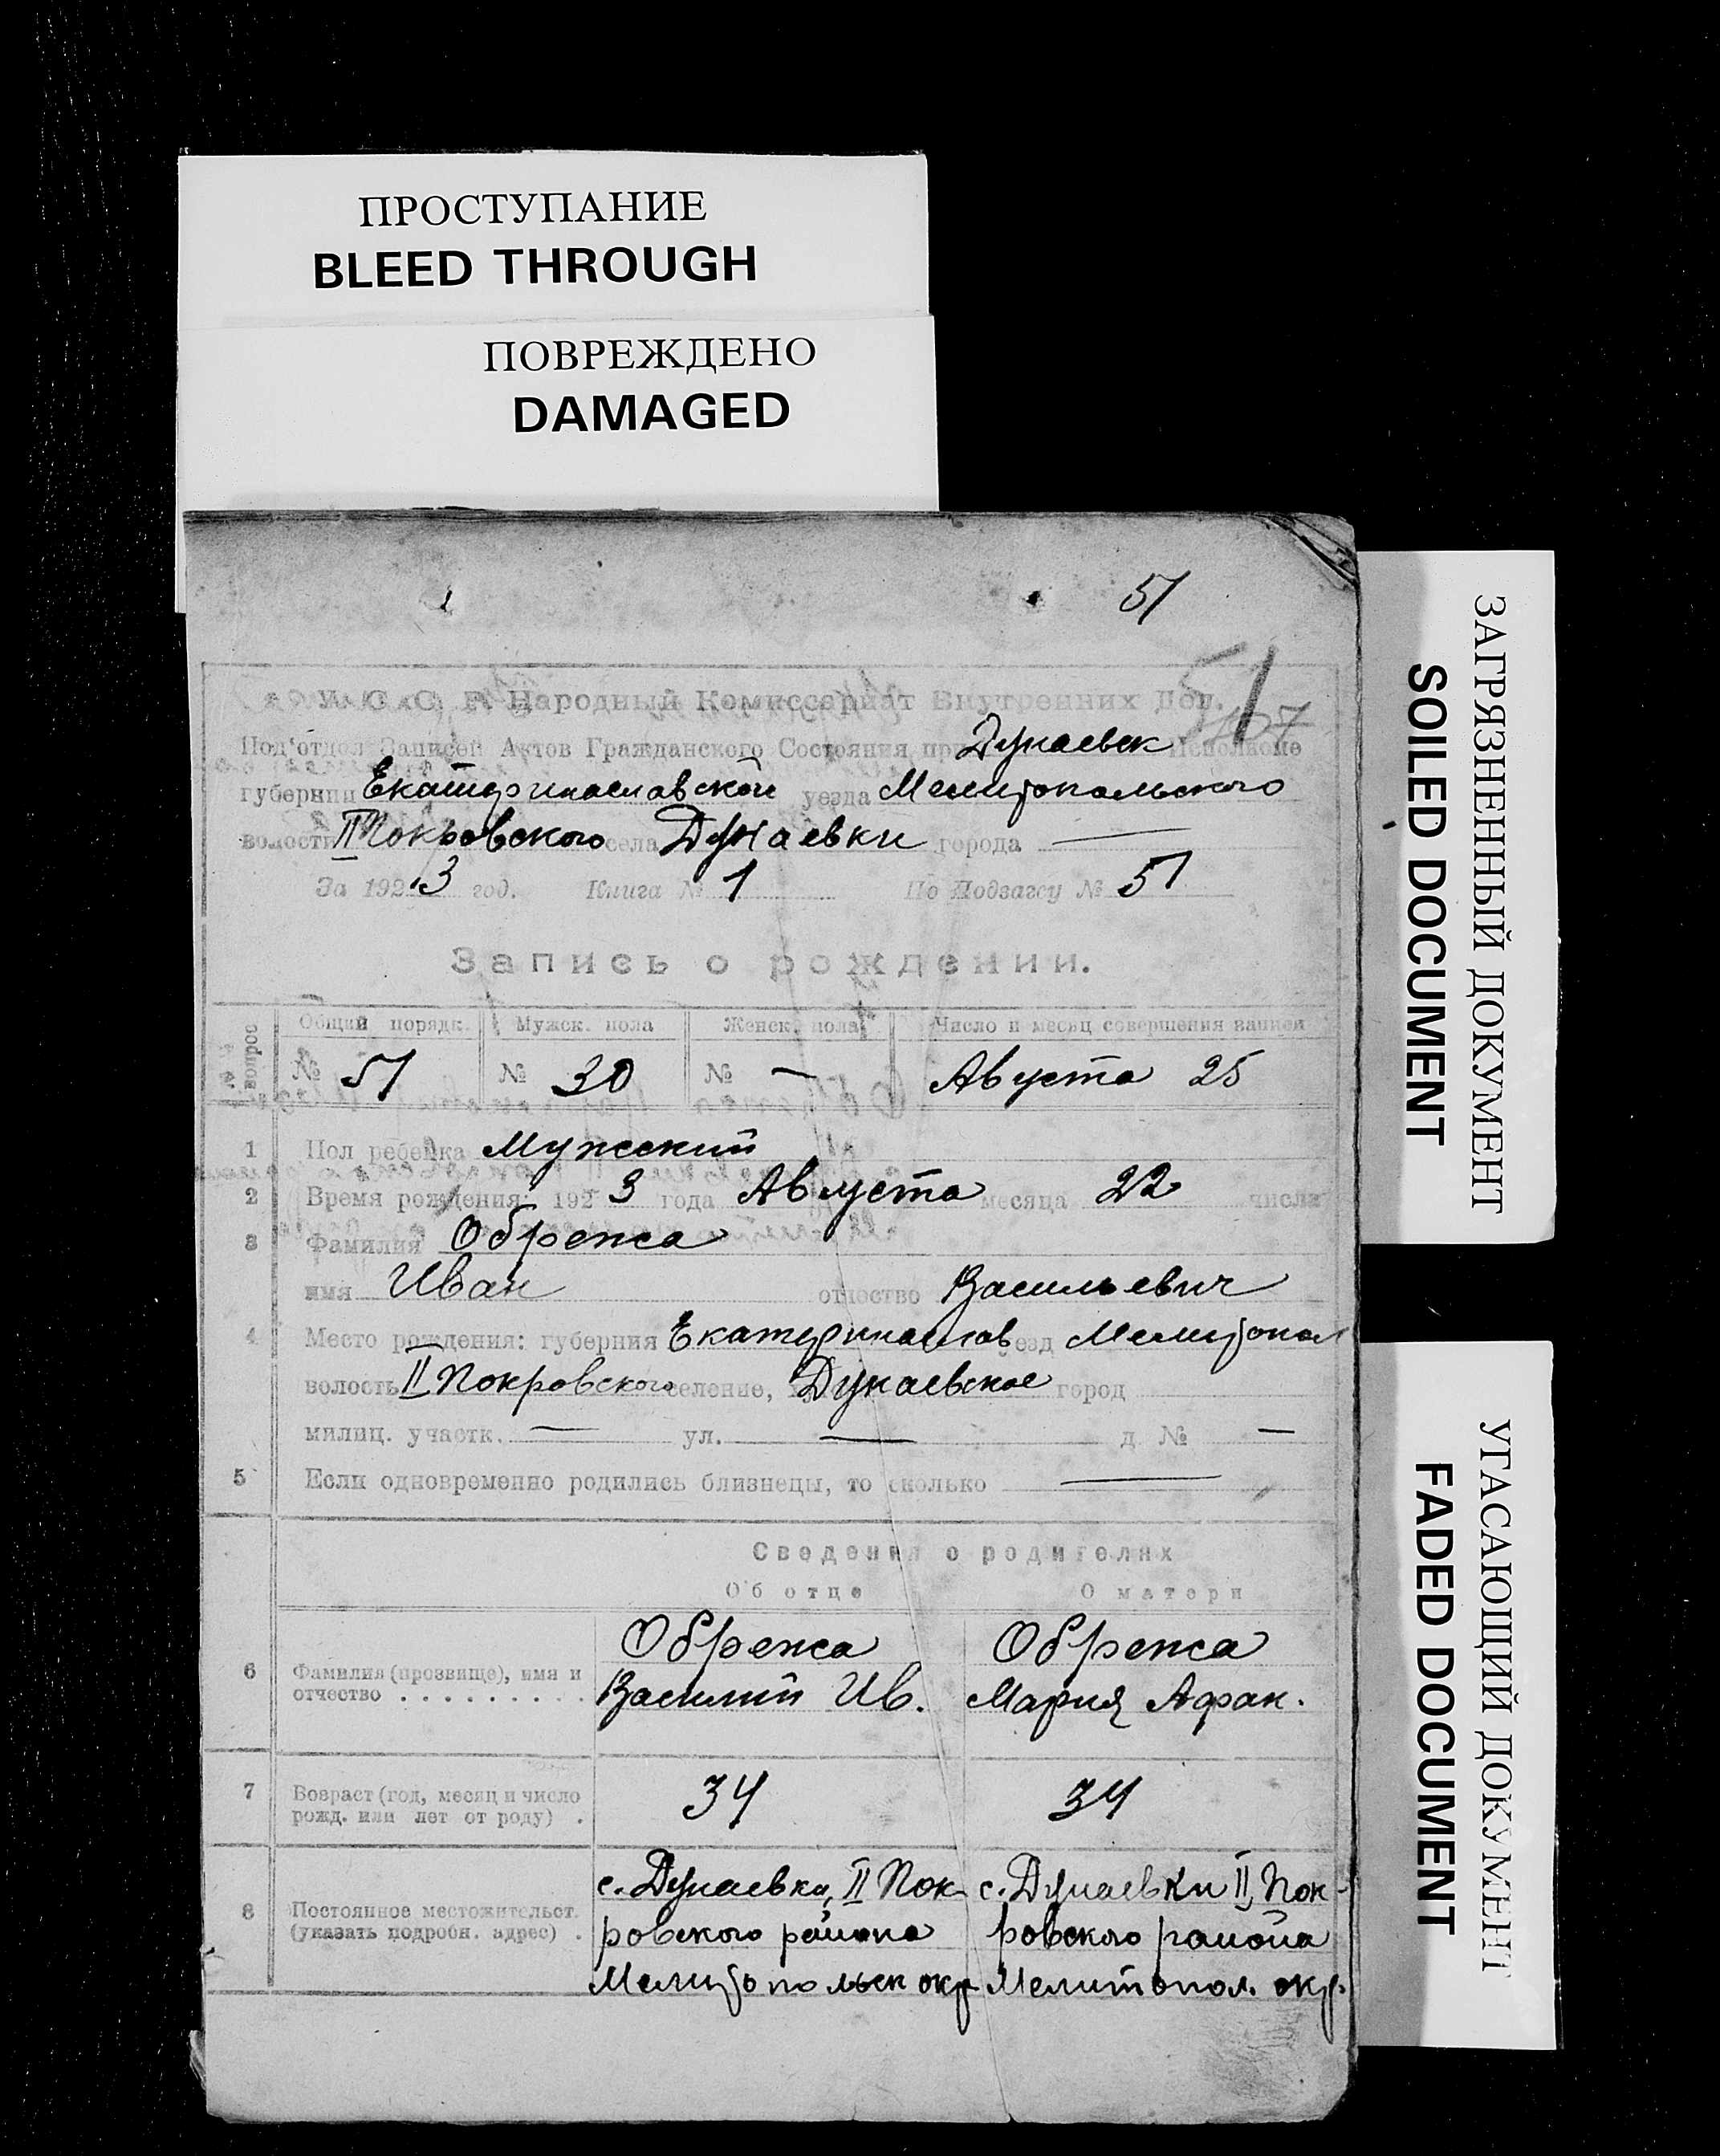 ПРОСТУПАНИЕ
BLEED THROUGH
ПОВРЕЖДЕНО
DAMAGED
51
51
У. С. С. Р. Народный Комиссариат Внутренних Дел.
Под'отдел Записей Актов Гражданского Состояния при Дунаевск Исполкоме
губернии Екатеринославской уезда Мелитопольского
волости II Покровского села Дунаевки города —
За 1923 год. Книга № 1 По Подзагсу № 51
Запись о рождении.
№№ вопросов Общий порядк. Мужск. пола Женск. пола Число и месяц совершения записи
№ 51 № 30 № — Августа 25
1 Пол ребенка Мужский
2 Время рождения: 1923 года Августа месяца 22 числа
3 Фамилия Обрежа
имя Иван отчество Васильевич
4 Место рождения: губерния Екатеринослав уезд Мелитопол
волость II Покровского селение, Дунаевское город
милиц. участк. — ул. — д № —
5 Если одновременно родились близнецы, то сколько —
Сведения о родителях
Об отце О матери
Обрежа Обрежа
6 Фамилия (прозвище), имя и отчество . . . . . . . . . Василий Ив. Мария Афан.
7 Возраст (год, месяц и число рожд. или лет от роду) . 34 34
с. Дунаевки, II Пок- с. Дунаевки II Пок-
8 Постоянное местожительст. (указать подробн. адрес) . ровского района ровского района
Мелитопольск окр Мелитопол. окр.
ЗАГРЯЗНЕННЫЙ ДОКУМЕНТ
SOILED DOCUMENT
УГАСАЮЩИЙ ДОКУМЕНТ
FADED DOCUMENT